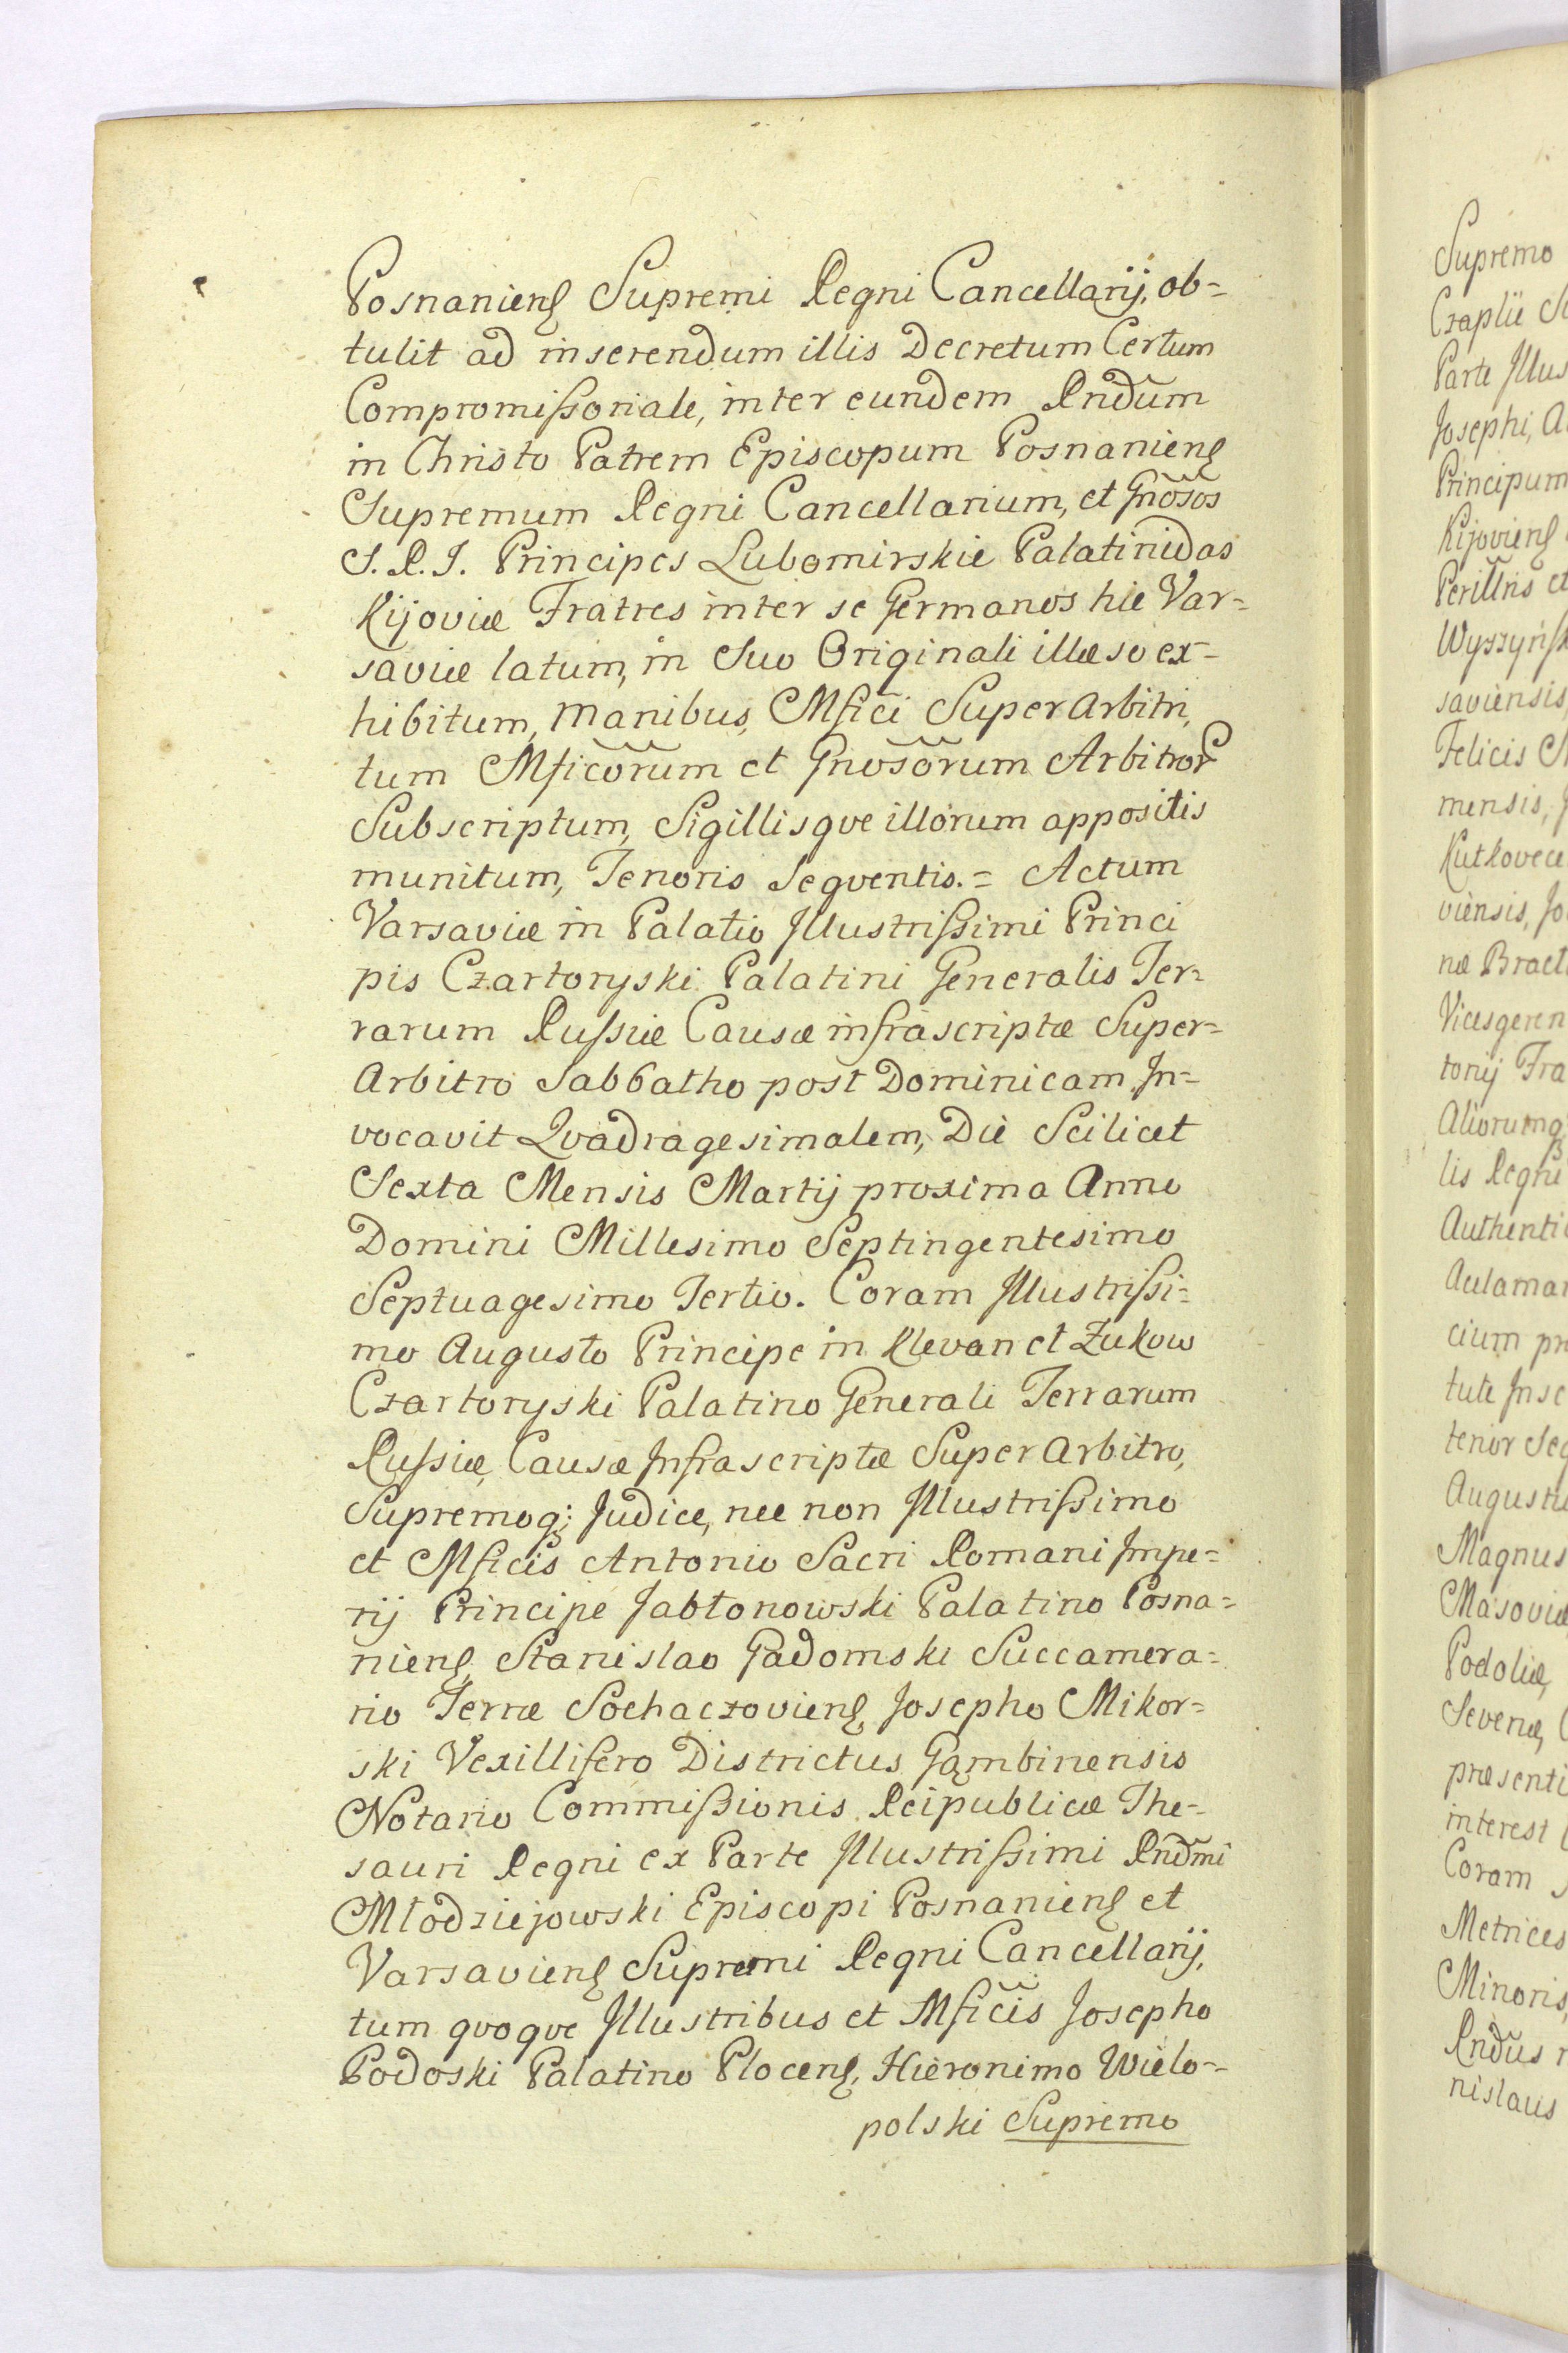 Posnaniens Supremi Regni Cancellarij, ob=
tulit ad inserendum illis Decretum Certum
Compromißoriale, inter eundem Rndum̃
in Christo Patrem Episcopum Posnaniens
Supremum Regni Cancellarium, et Gnõsos
S. R. I. Principes Lubomirskie Palatinidas
Kijoviæ Fratres inter se Germanos hic Var=
saviæ latum, in Suo Originali illæso ex=
hibitum, manibus, Mficĩ Super Arbitri,
tum Mficõrum et Gnosõrum Arbitror
Subscriptum, Sigillisqve illorum appositis
munitum, Tenoris Seqventis. = Actum
Varsaviæ in Palatio Illustrißimi Princi
pis Czartoryski Palatini Generalis Ter=
rarum Rußiæ Causæ infrascriptæ Super=
Arbitro Sabbatho post Dominicam In=
vocavit Qvadragesimalem, Die Scilicet
Sexta Mensis Martij proxima Anno
Domini Millesimo Septingentesimo
Septuagesimo Tertio. Coram Illustrißi=
mo Augusto Principe in Klevan et Zukow
Czartoryski Palatino Generali Terrarum
Rußiæ, Causæ Infrascriptæ Super Arbitro,
Supremoq; Judice, nec non Illustrißimo
et Mficis Antonio Sacri Romani Impe=
rij Principe Jabłonowski Palatino Posna=
niens, Stanislao Gadomski Succamera=
rio Terræ Sochaczoviens, Josepho Mikor=
ski Vexillifero Districtus Gąmbinensis
Notario Commißionis Reipublicæ The=
sauri Regni ex Parte Illustrißimi Rndm̃i
Młodziejowski Episcopi Posnaniens et
Varsaviens Supremi Regni Cancellarij,
tum qvoqve Illustribus et Mficĩs Josepho
Podoski Palatino Plocens, Hieronimo Wielo=
polski Supremo
Supremo
Czaplic
Parte Illus
Josephi, A
Principum
Kijoviens
Perillris et
Wyszyńsk
saviensis,
Felicis
mensis,
Kutkovece
viensis, Jo
næ Bracl
Vicesgeren
torij Fra
Aliorumq
lis Regni
Authentic
Aulamar
cium pr
tute Inse
tenor Seq
Augustu
Magnus
Masoviæ
Podoliæ,
Severiæ,
præsenti
interest
Coram
Metrices
Minoris,
Rndus
nislaus